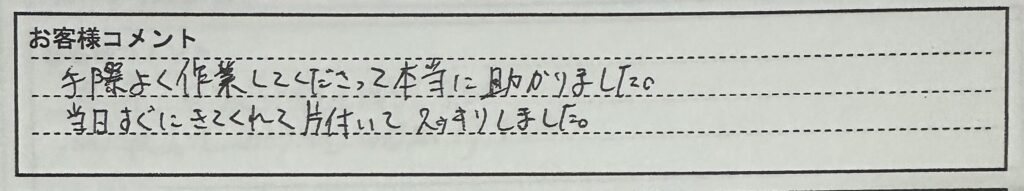 お客様コメント
手際よく作業してくださって本当に助かりました。
当日すぐにきてくれて片付いてスッキリしました。